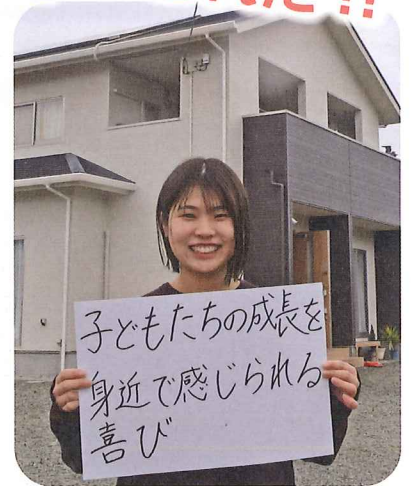 子どもたちの成長を
身近で感じられる
喜び